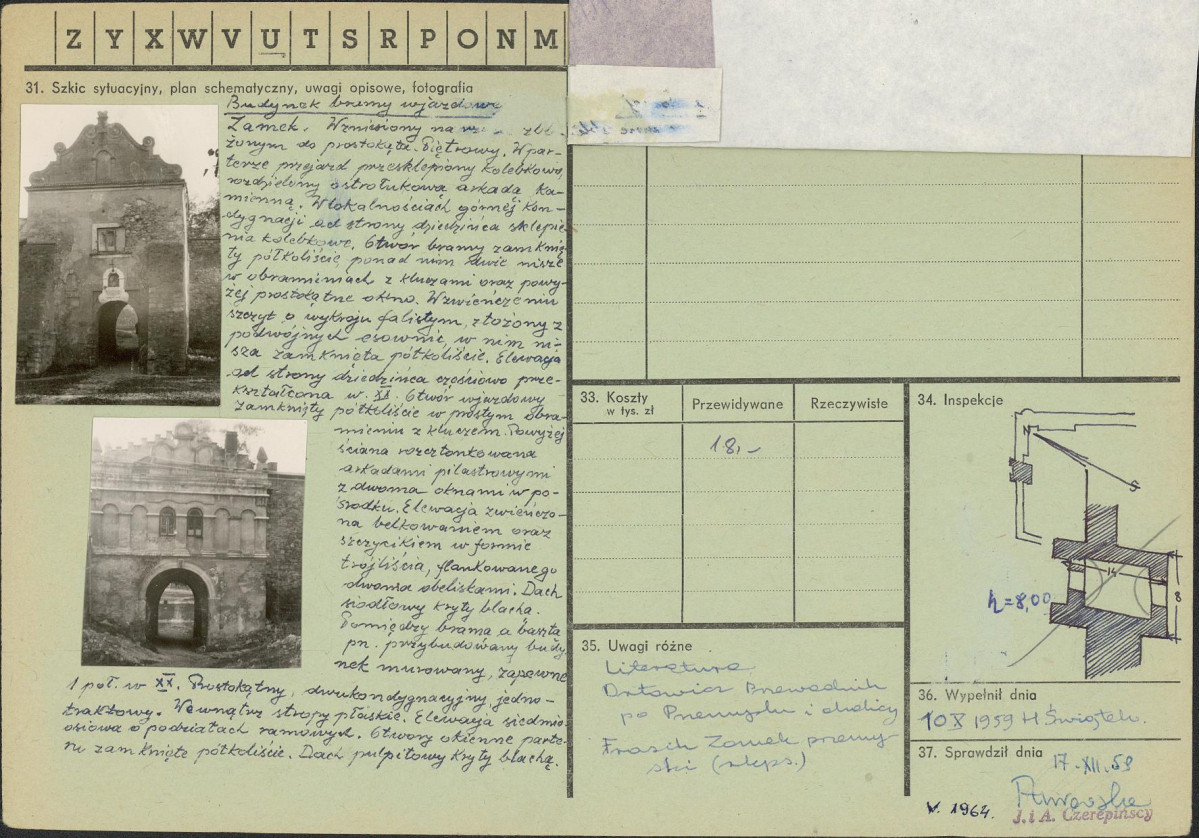 Z Y X W V U T S R P O N M
31. Szkic sytuacyjny, plan schematyczny, uwagi opisowe, fotografia
Budynek bramy wjazdowej
Zamek. Wzniesiony na zbli-
żonym do prostokąta. Piętrowy. W par-
terze przejazd przesklepiony kolebkowo,
rozdzielony ostrołukową arkadą ka-
mienną. W lokalnościach górnej kon-
dygnacji od strony dziedzińca sklepie
nia kolebkowe. Otwór bramy zamknię
ty półkoliście, ponad nim dwie nisze
w obramieniach z kluczami oraz powy-
żej prostokątne okno. W zwieńczeniu
szczyt o wykroju falistym, złożony z
podwójnych esownic, w nim ni-
sza zamknięta półkoliście. Elewacja
od strony dziedzińca częściowo prze-
kształcona w. XX. Otwór wjazdowy
zamknięty półkoliście w prostym obra-
mieniu z kluczem. Powyżej
ściana rozczłonkowana
arkadami pilastrowymi
z dwoma oknami w po-
środku. Elewacja zwieńczo-
na belkowaniem oraz
szczycikiem w formie
trójliścia, flankowanego
dwoma obeliskami. Dach
siodłowy kryty blachą.
Pomiędzy bramą a basztą
pn. przybudowany budy
nek murowany, zapewne
1 poł. w XX. Prostokątny, dwukondygnacyjny, jedno-
traktowy. Wewnątrz stropy płaskie. Elewacja siedmio-
osiowa o podziałach ramowych. Otwory okienne parte-
ru zamknięte półkoliście. Dach pulpitowy kryty blachą.
33. Koszty
w tys. zł
Przewidywane
Rzeczywiste
18,-
34. Inspekcje
N
S
14
8
h=8,00
35. Uwagi różne
Literatura
Orłowicz Przewodnik
po Przemyślu i okolicy
Frasch Zamek przemy-
ski (rkps.)
36. Wypełnił dnia
10 X 1959 H. Świątek
37. Sprawdził dnia
17-XII.59
V. 1964.
J. i A. Czerepińscy